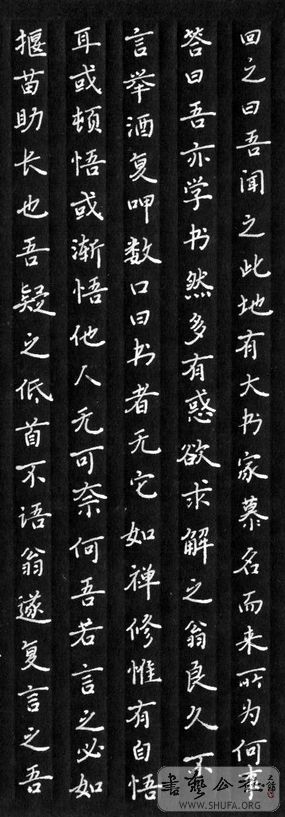 回之曰吾闻之此地有大书家慕名而来所为何在
答曰吾亦学书然多有惑欲求解之翁良久不
言举酒复呷数口曰书者无它如禅修惟有自悟
耳或顿悟或渐悟他人无可奈何吾若言之必如
揠苗助长也吾疑之低首不语翁遂复言之吾
書藝公社
WWW.SHUFA.ORG